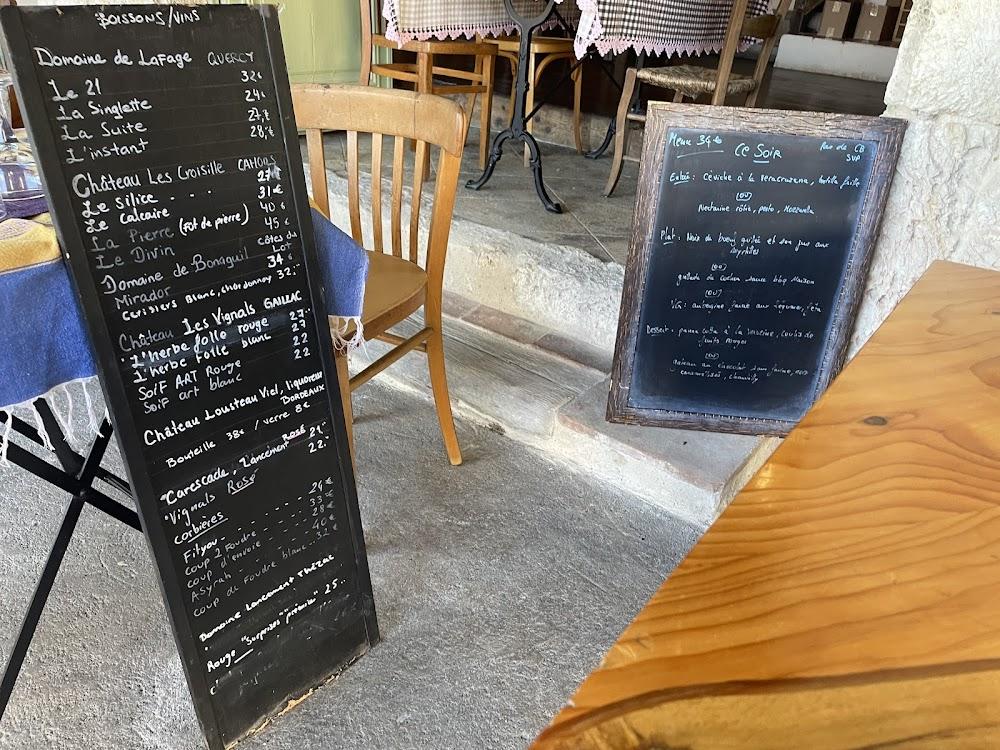 BOISSONS/VINS
Domaine de Lafage QUERCY
Le 21 32€
La Singlette 24€
La Suite 27,-€
L'instant 28,-€
Château Les Croisille CAHORS
Le silice 27€
Le calcaire 31€
La Pierre (fût de pierre) 40€
Le Divin 45€
Domaine de Bonaguil Côtes du Lot
Mirador 34€
Cerisiers Blanc, chardonnay 32..
Château Les Vignals GAILLAC
"L'herbe folle rouge 27..
L'herbe folle blanc 27
Soif ART Rouge 22
Soif art blanc 22
Château Lousteau Vieil, liquoreux BORDEAUX
Bouteille 38€ / verre 8€
"Carescade, Lancement ROSÉ 21..
"Vignals Rosé 22..
Corbières
Fityou 24€
coup 2 foudre 33€
coup d'envoie 28€
Asyrah 40€
coup de foudre blanc 32€
Domaine Lancement THÉZAC
Rouge "Surprises" 25..
Menu 34€ Ce Soir Pas de CB SVP
Entrée : Céviche à la veracruzana, tortilla frite
(ou)
Nectarine rôtie, pesto, Mozzarella
Plat : Noix de bœuf grillée et son jus aux myrtilles
(ou)
grillade de cochon sauce bbq Maison
(ou)
VG : aubergine farcie aux légumes, feta
Dessert : panna cotta à la verveine, coulis de fruits rouges
(ou)
gâteau au chocolat sans farine, caramélisées, chantilly